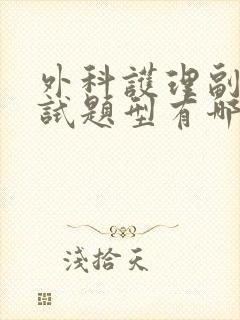 外科護理副
試題型有哪
淺拾天